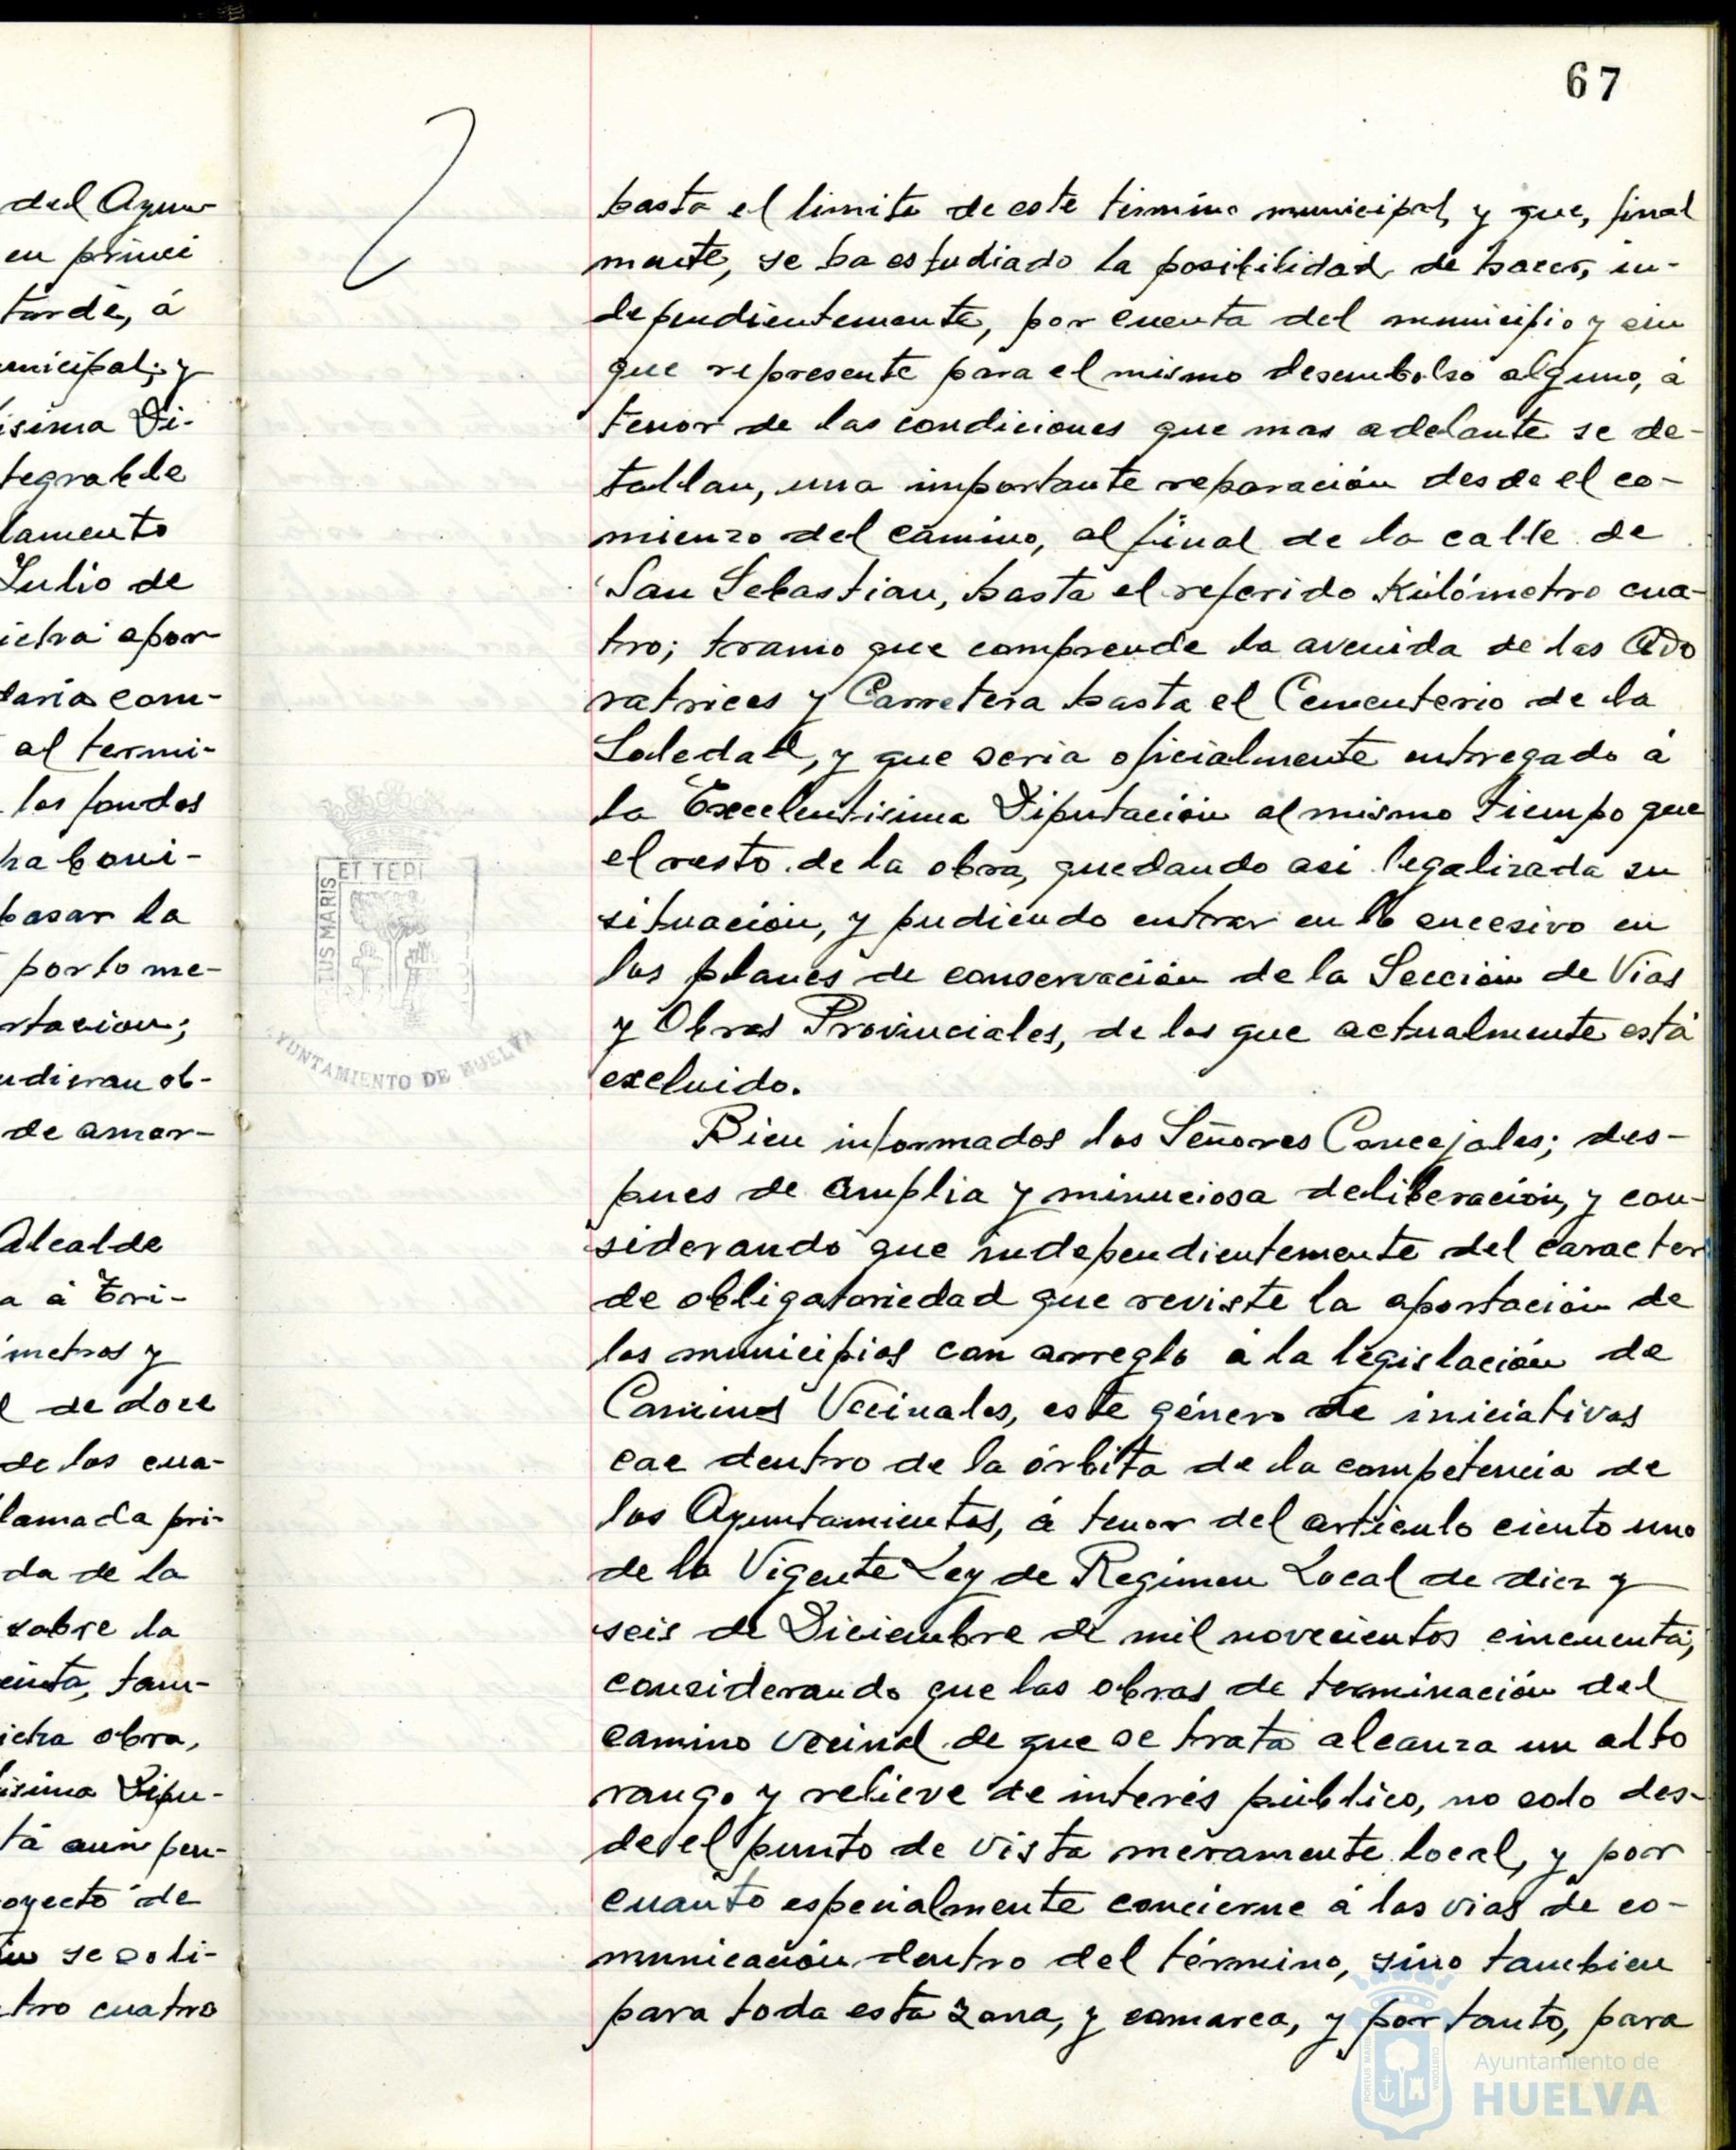 67
del Ayun-
en princi
tarde, á
unicipal; y
ísima Di-
tegrable
lamento
Julio de
icha apor-
daria com-
al termi-
los fondos
ha boni-
basar la
por lo me-
rtacion;
udieran ob-
de amor-
Alcalde
a á Tri-
metros y
l de doce
de los cua-
lamada pri-
da de la
sobre la
einta, tam-
icha obra,
ísima Dipu-
tá aun pen-
oyecto de
se soli-
tro cuatro
hasta el limite de este término municipal, y que, final
mente, se ha estudiado la posibilidad de hacer, in-
dependientemente, por cuenta del municipio y sin
que represente para el mismo desembolso alguno, á
tenor de las condiciones que mas adelante se de-
tallan, una importante reparación desde el co-
mienzo del camino, al final de la calle de
San Sebastian, hasta el referido Kilómetro cua-
tro; tramo que comprende la avenida de las Ado
ratrices y Carretera hasta el Cementerio de la
Soledad, y que seria oficialmente entregado á
la Excelentisima Diputación al mismo tiempo que
el resto de la obra, quedando asi legalizada su
situación, y pudiendo entrar en lo sucesivo en
los planes de conservación de la Sección de Vias
y Obras Provinciales, de los que actualmente está
excluido.
Bien informados los Señores Concejales; des-
pues de amplia y minuciosa deliberación, y con-
siderando que independientemente del caracter
de obligatoriedad que reviste la aportación de
los municipios con arreglo á la legislación de
Caminos Vecinales, este género de iniciativas
cae dentro de la órbita de la competencia de
los Ayuntamientos, á tenor del artículo ciento uno
de la Vigente Ley de Regimen Local de diez y
seis de Diciembre de mil novecientos cincuenta;
considerando que las obras de terminación del
camino vecinal de que se trata alcanza un alto
rango y relieve de interés público, no solo des-
de el punto de vista meramente local, y por
cuanto especialmente concierne á las vias de co-
municación dentro del término, sino tambien
para toda esta zona, y comarca, y por tanto, para
ET TERR
TUS MARIS
AYUNTAMIENTO DE HUELVA
PORTUS MARIS
CUSTODIA
Ayuntamiento de
HUELVA